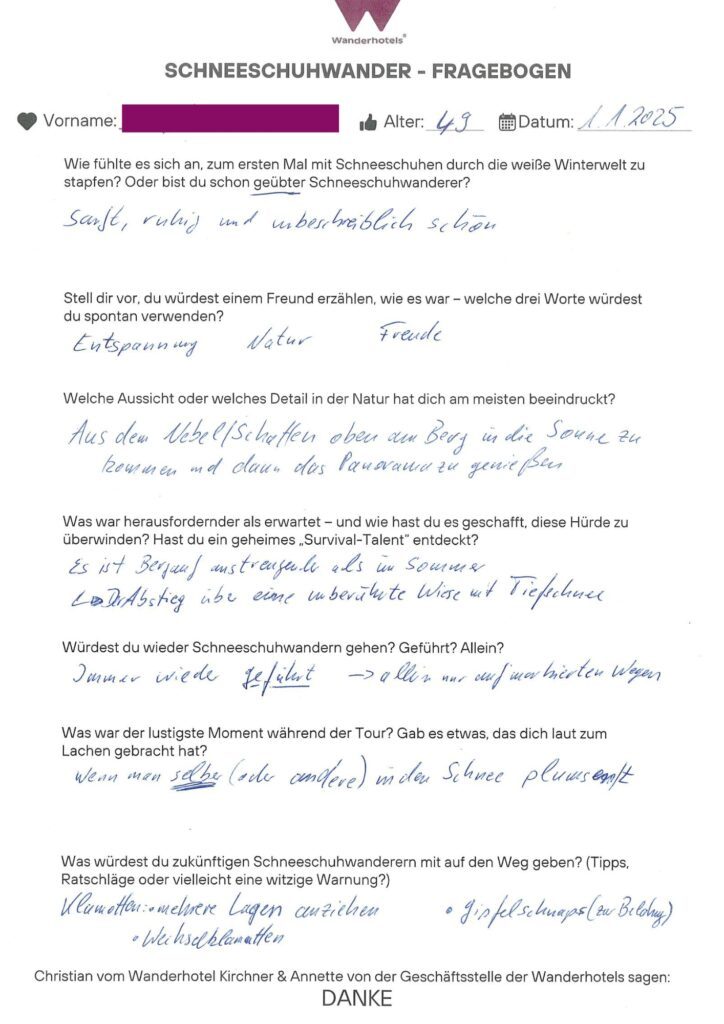 Wanderhotels®
SCHNEESCHUHWANDER - FRAGEBOGEN
Vorname: Alter: 49 Datum: 1.1.2025
Wie fühlte es sich an, zum ersten Mal mit Schneeschuhen durch die weiße Winterwelt zu
stapfen? Oder bist du schon geübter Schneeschuhwanderer?
Sanft, ruhig und unbeschreiblich schön
Stell dir vor, du würdest einem Freund erzählen, wie es war – welche drei Worte würdest
du spontan verwenden?
Entspannung Natur Freude
Welche Aussicht oder welches Detail in der Natur hat dich am meisten beeindruckt?
Aus dem Nebel/Schatten oben am Berg in die Sonne zu
kommen und dann das Panorama zu genießen
Was war herausfordernder als erwartet – und wie hast du es geschafft, diese Hürde zu
überwinden? Hast du ein geheimes „Survival-Talent" entdeckt?
Es ist Bergauf anstrengender als im Sommer
Der Abstieg über eine unberührte Wiese mit Tiefschnee
Würdest du wieder Schneeschuhwandern gehen? Geführt? Allein?
Immer wieder geführt → allein nur auf markierten Wegen
Was war der lustigste Moment während der Tour? Gab es etwas, das dich laut zum
Lachen gebracht hat?
Wenn man selber (oder andere) in den Schnee
Was würdest du zukünftigen Schneeschuhwanderern mit auf den Weg geben? (Tipps,
Ratschläge oder vielleicht eine witzige Warnung?)
Klamotten: • mehrere Lagen anziehen • Gipfelschnaps (zur
• Wechselklamotten
Christian vom Wanderhotel Kirchner & Annette von der Geschäftsstelle der Wanderhotels sagen:
DANKE